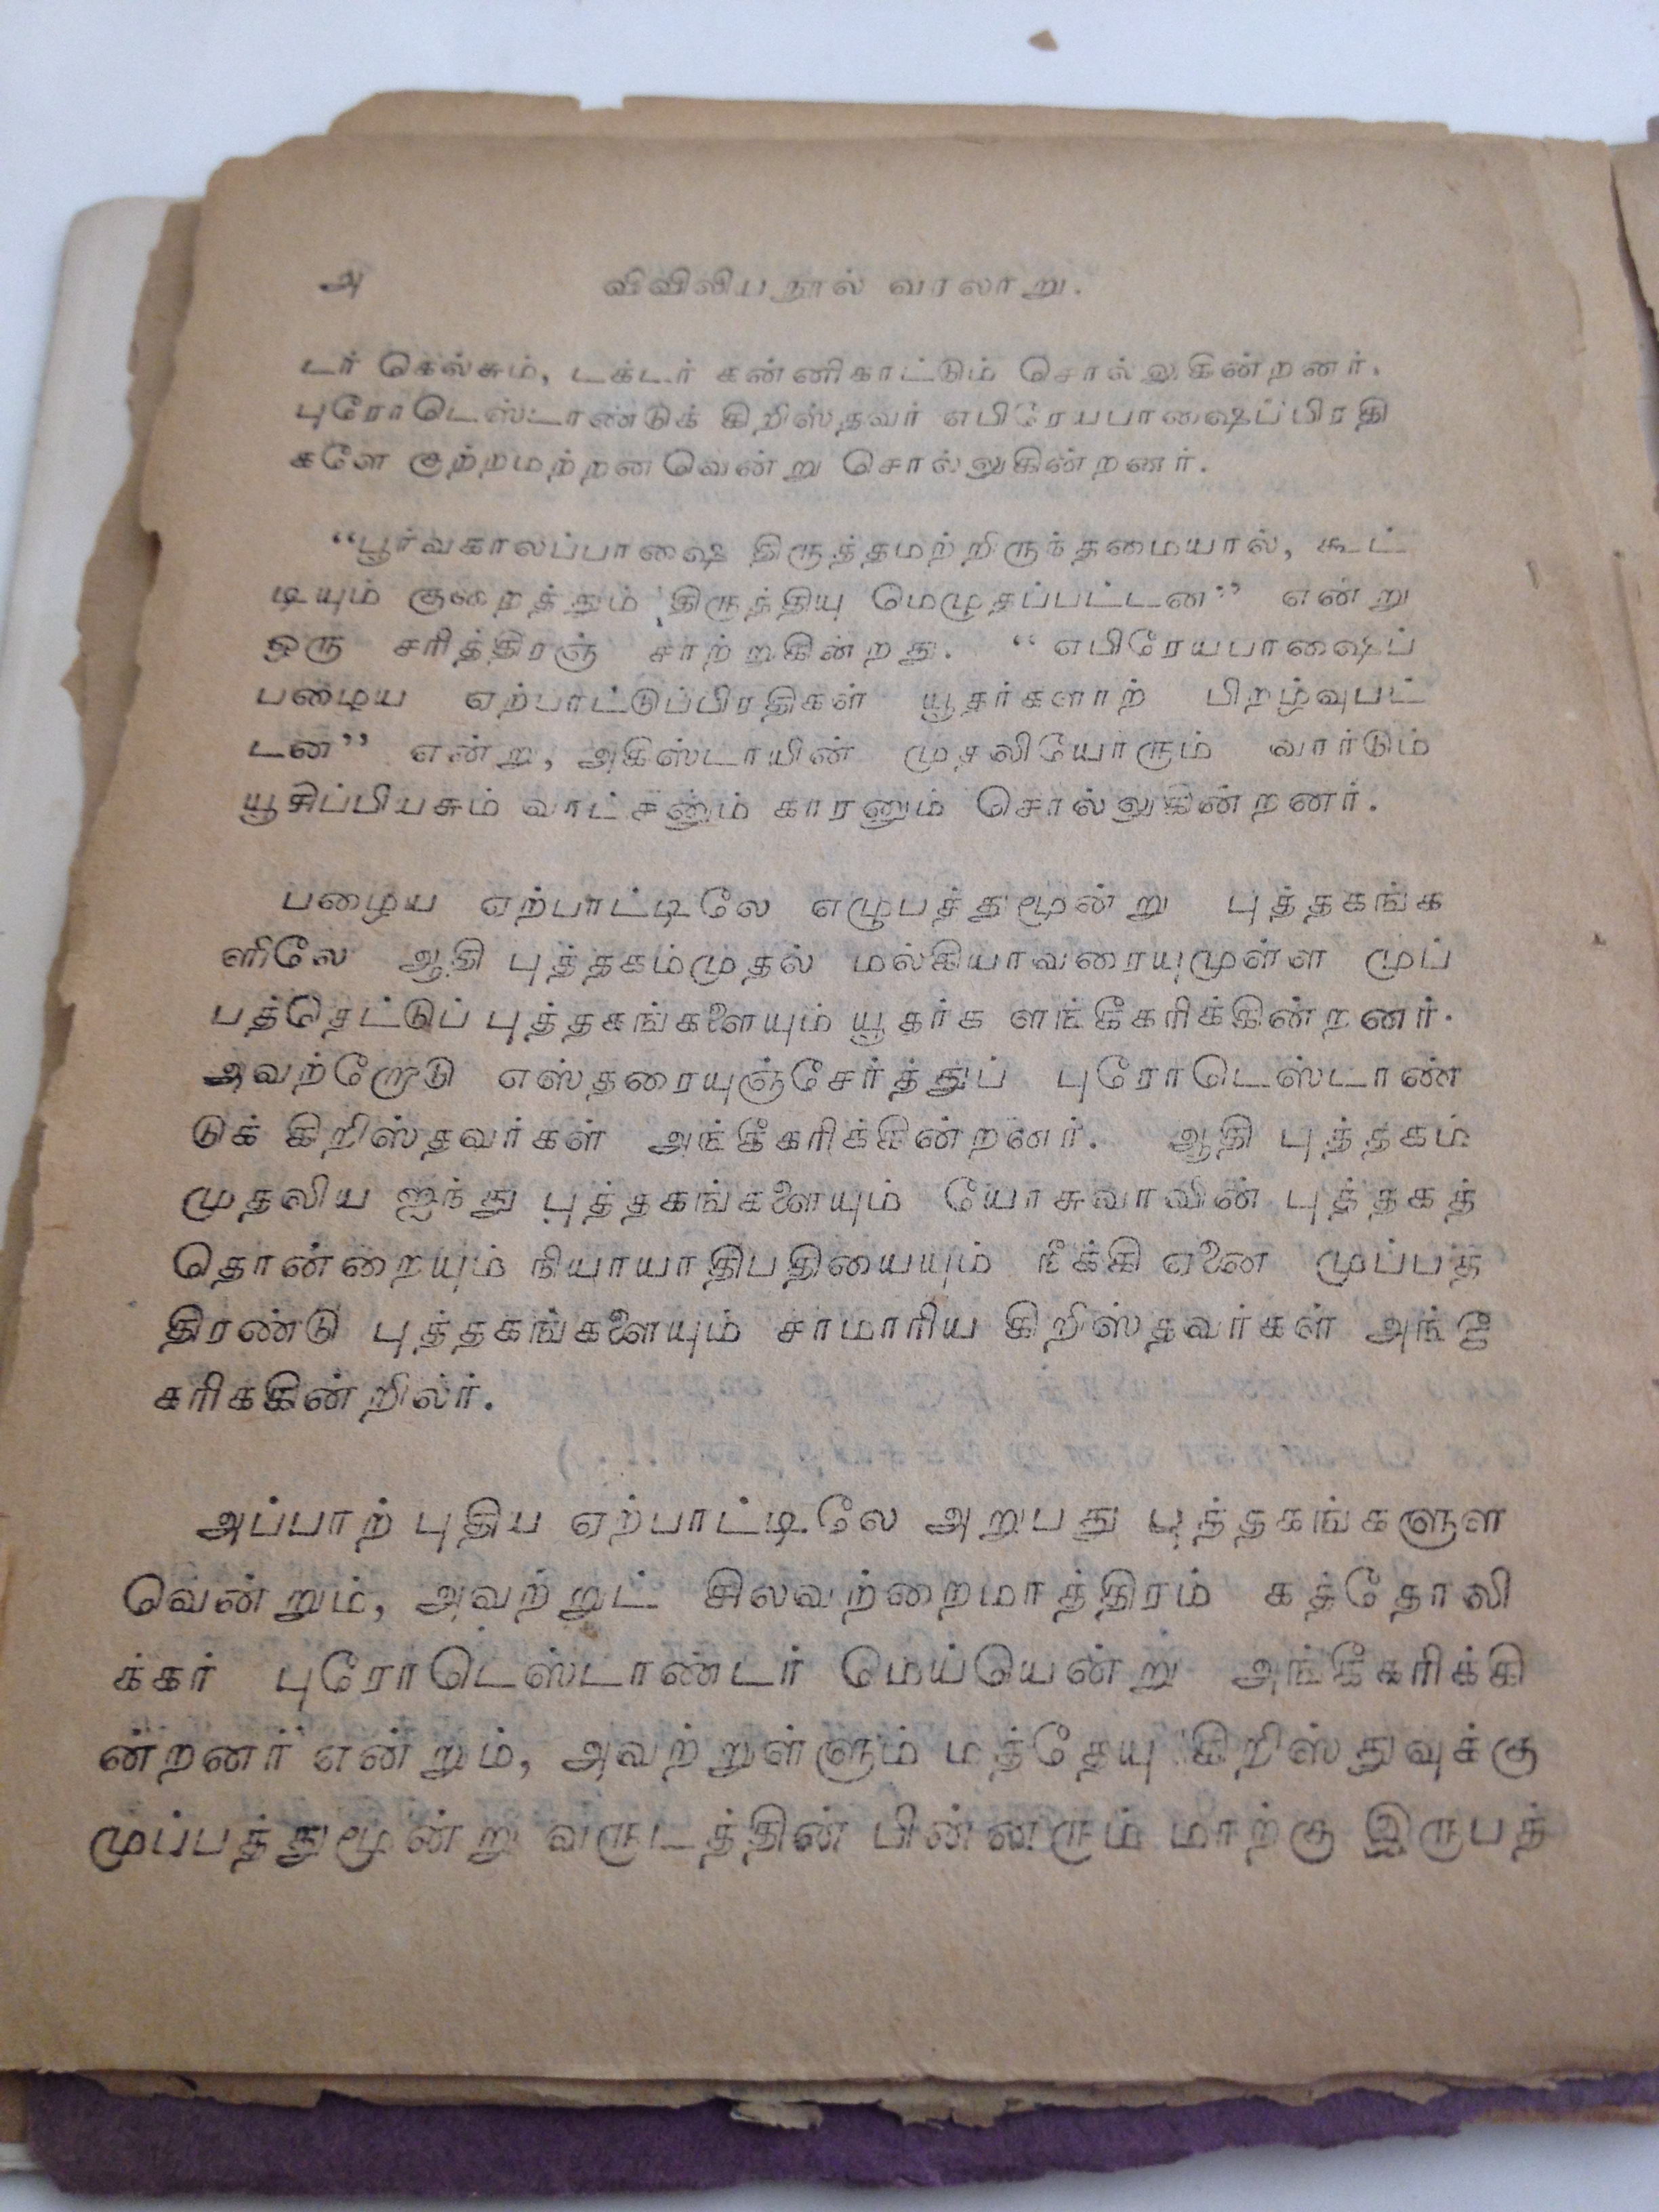 அ விவிலிய நூல் வரலாறு.
டர் கெல்சும், டக்டர் கன்னிகாட்டும் சொல்லுகின்றனர்.
புரோடெஸ்டாண்டுக் கிறிஸ்தவர் எபிரேயபாஷைப்பிரதி
களே குற்றமற்றனவென்று சொல்லுகின்றனர்.
“பூர்வகாலப்பாஷை திருத்தமற்றிருந்தமையால், கூட்
டியும் குறைத்தும் திருத்தியு மெழுதப்பட்டன” என்று
ஒரு சரித்திரஞ் சாற்றுகின்றது. “எபிரேயபாஷைப்
பழைய ஏற்பாட்டுப்பிரதிகள் யூதர்களாற் பிறழ்வுபட்
டன” என்று, அகிஸ்டாயின் முதலியோரும் வார்டும்
யூசிப்பியசும் வாட்சனும் காரனும் சொல்லுகின்றனர்.
பழைய ஏற்பாட்டிலே எழுபத்துமூன்று புத்தகங்க
ளிலே ஆதி புத்தகம்முதல் மல்கியாவரையுமுள்ள முப்
பத்தெட்டுப் புத்தகங்களையும் யூதர்க ளங்கீகரிக்கின்றனர்.
அவற்றோடு எஸ்தரையுஞ்சேர்த்துப் புரோடெஸ்டாண்
டுக் கிறிஸ்தவர்கள் அங்கீகரிக்கின்றனர். ஆதி புத்தகம்
முதலிய ஐந்து புத்தகங்களையும் யோசுவாவின் புத்தகத்
தொன்றையும் நியாயாதிபதியையும் நீக்கி ஏனை முப்பத்
திரண்டு புத்தகங்களையும் சாமாரிய கிறிஸ்தவர்கள் அங்கீ
கரிக்கின்றிலர்.
அப்பாற் புதிய ஏற்பாட்டிலே அறுபது புத்தகங்களுள
வென்றும், அவற்றுட் சிலவற்றைமாத்திரம் கத்தோலி
க்கர் புரோடெஸ்டாண்டர் மெய்யென்று அங்கீகரிக்கி
ன்றனர் என்றும், அவற்றுள்ளும் மத்தேயு கிறிஸ்துவுக்கு
முப்பத்துமூன்று வருடத்தின் பின்னரும் மாற்கு இருபத்